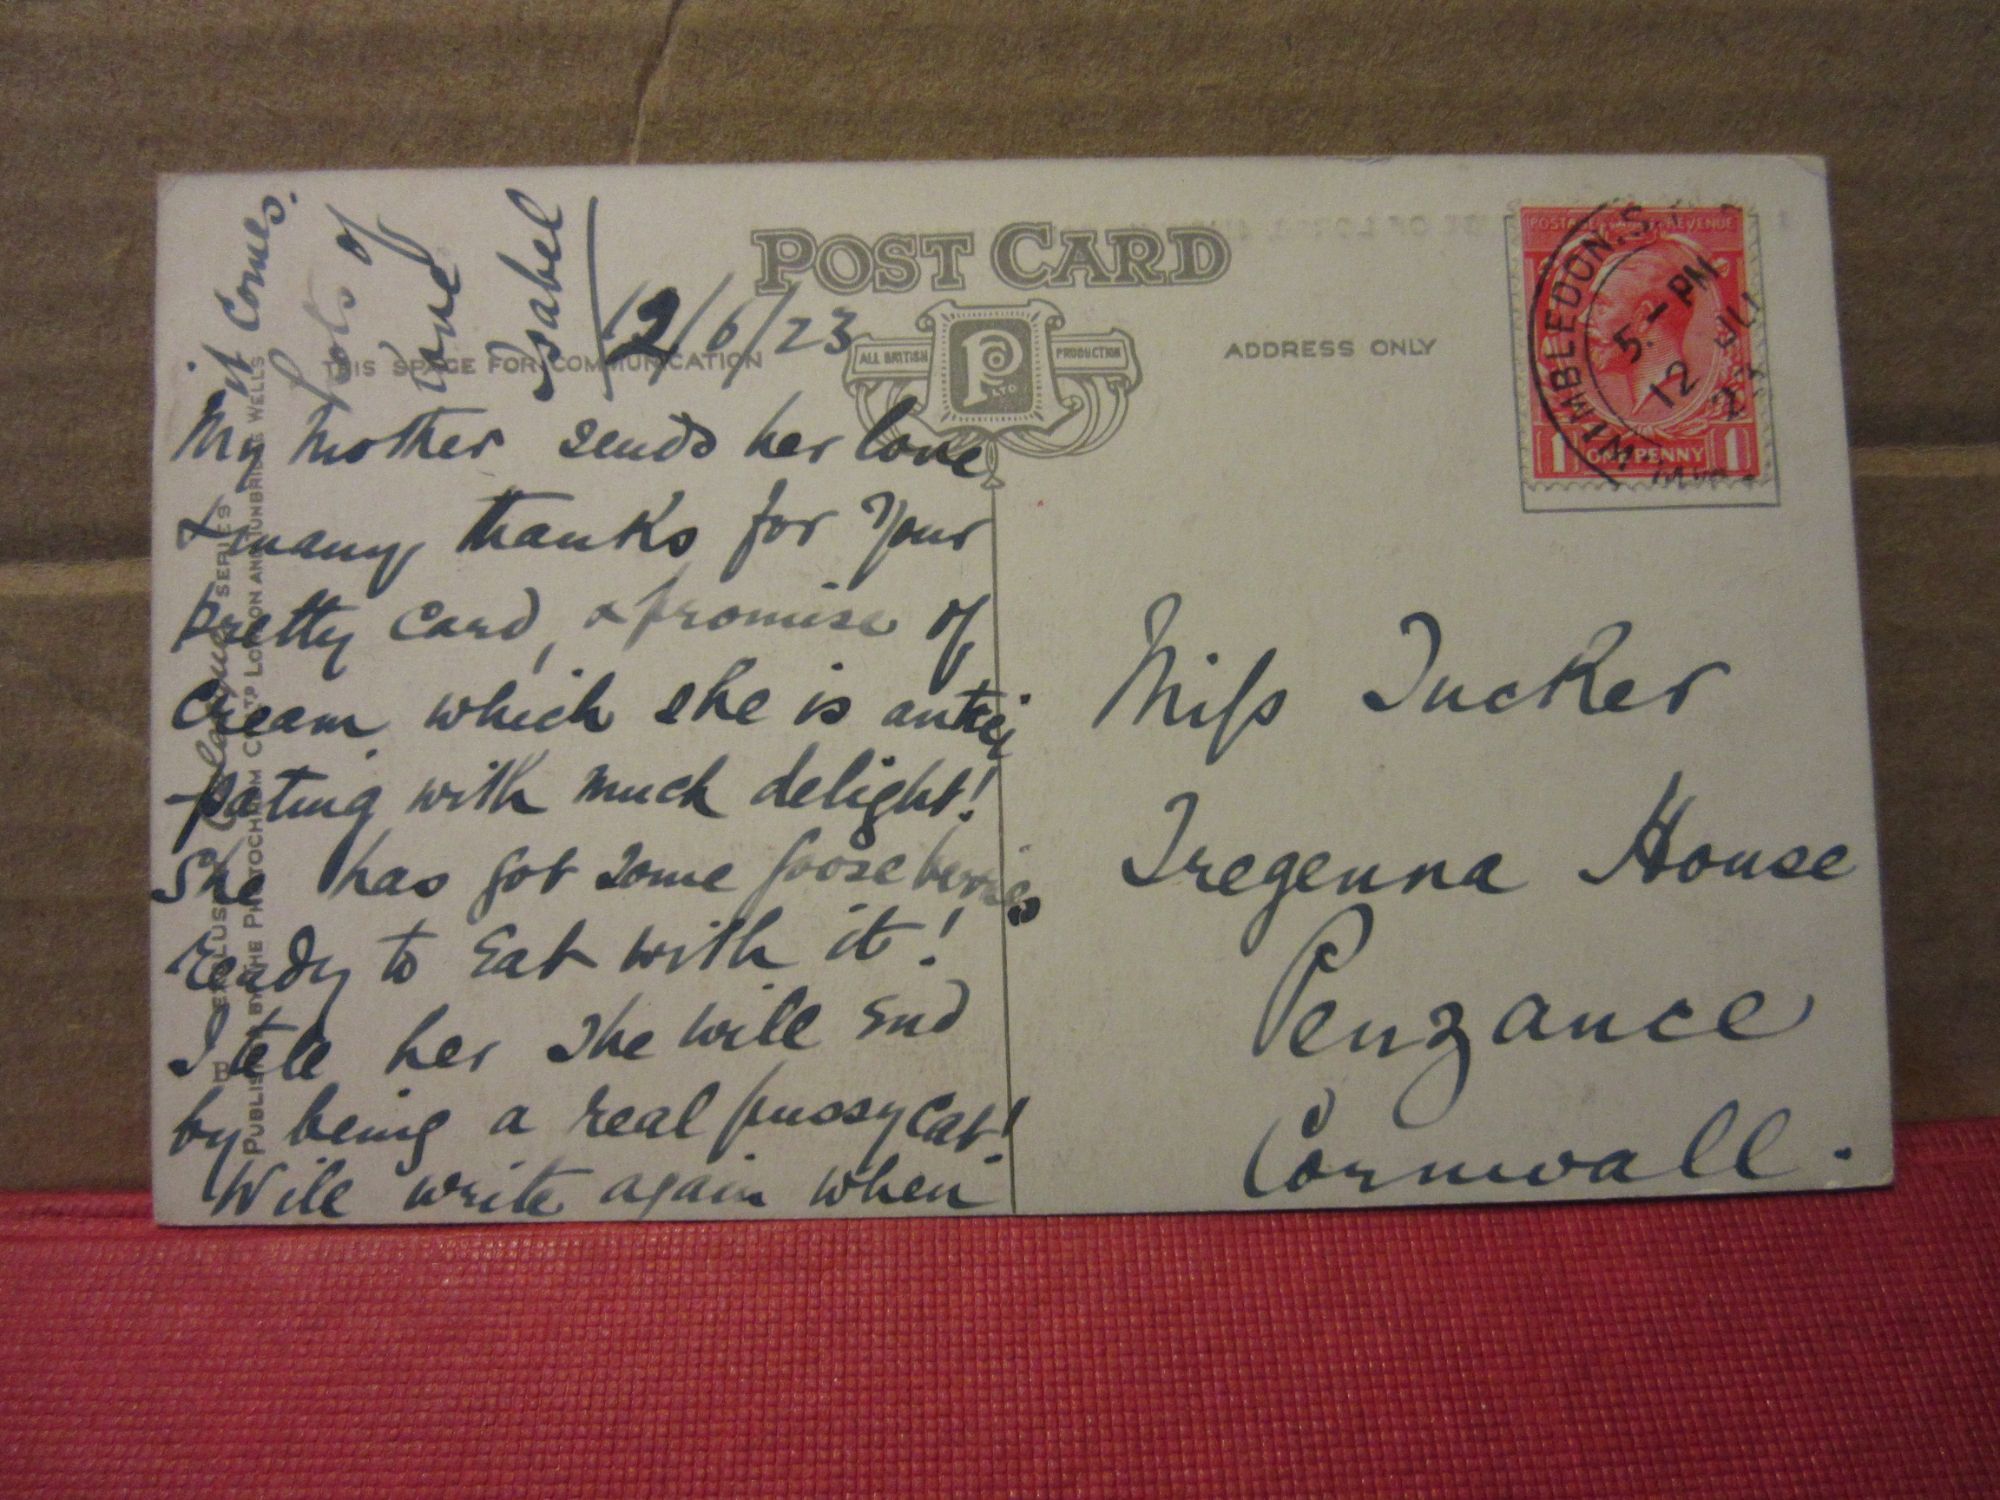 POST CARD
THIS SPACE FOR COMMUNICATION
ALL BRITISH
P
LTD
PRODUCTION
ADDRESS ONLY
12/6/23
My Mother sends her love
& many thanks for your
pretty card, & promise of
cream which she is antici
-pating with much delight!
She has got some gooseberries
ready to eat with it!
I tell her she will end
by being a real pussy cat!
Will write again when
it comes.
Lots of
love
Isabel
Miss Tucker
Tregenna House
Penzance
Cornwall.
POSTAGE REVENUE
1 ONE PENNY 1
WIMBLEDON. S
5. - PM
12 JU
23
SERIES
PUBLISHED BY THE PHOTOCHROM CO. LTD LONDON AND TUNBRIDGE WELLS